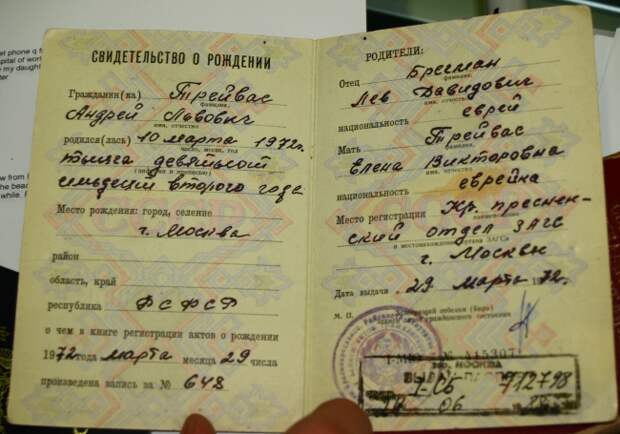 СВИДЕТЕЛЬСТВО О РОЖДЕНИИ
Гражданин(ка) Трейвас
фамилия,
Андрей Львович
имя, отчество
родился(лась) 10 марта 1972г.
число, месяц, год
тысяча девятьсот
семьдесят второго года
Место рождения: город, селение
г. Москва
район
область, край
республика РСФСР
о чем в книге регистрации актов о рождении
1972 года марта месяца 29 числа
произведена запись за № 648
РОДИТЕЛИ:
Отец Брегман
фамилия,
Лев Давидович
имя, отчество
национальность еврей
Мать Трейвас
фамилия,
Елена Викторовна
имя, отчество
национальность еврейка
Место регистрации Кр. преснен-
ский отдел ЗАГС
и местонахождение органа ЗАГСа
г. Москвы
Дата выдачи 29 марта 1972.
М. П.
гор. МОСКВА
I-СБ 712798
06
el phone
pital of wor
my daugh
ter
w from
the bea
while.